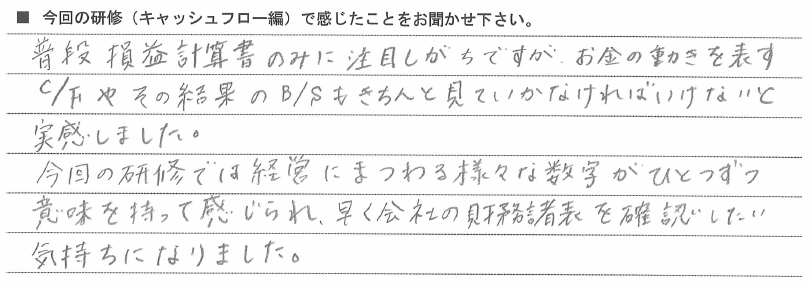 ■ 今回の研修（キャッシュフロー編）で感じたことをお聞かせ下さい。
普段 損益計算書のみに注目しがちですが、お金の動きを表す
C/Fやその結果のB/Sもきちんと見ていかなければいけないと
実感しました。
今回の研修では経営にまつわる様々な数字がひとつずつ
意味を持って感じられ、早く会社の財務諸表を確認したい
気持ちになりました。